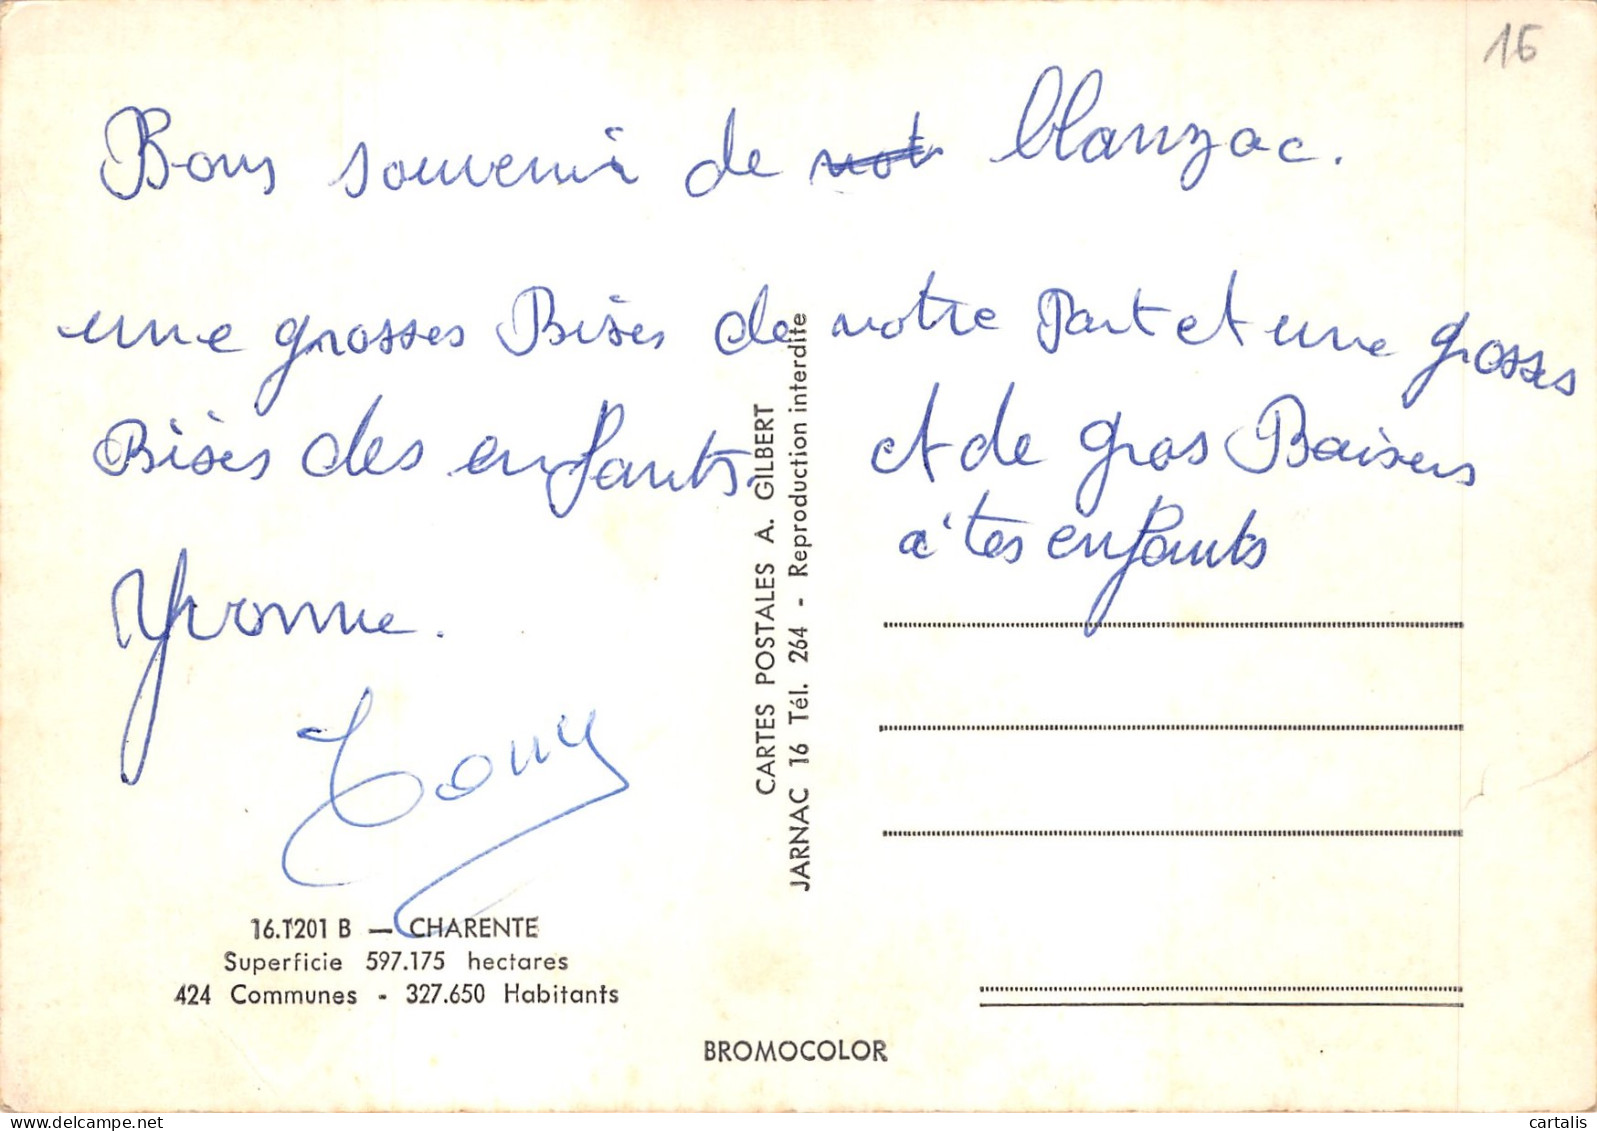 16
Bons souvenir de not Blanzac.
une grosses Bises de notre Part et une grosses
Bises des enfants. et de gros Baisers
a' tes enfants
Yvonne.
Tony
CARTES POSTALES A. GILBERT
JARNAC 16 Tél. 264 - Reproduction interdite
16.T201 B — CHARENTE
Superficie 597.175 hectares
424 Communes - 327.650 Habitants
BROMOCOLOR
cartalis